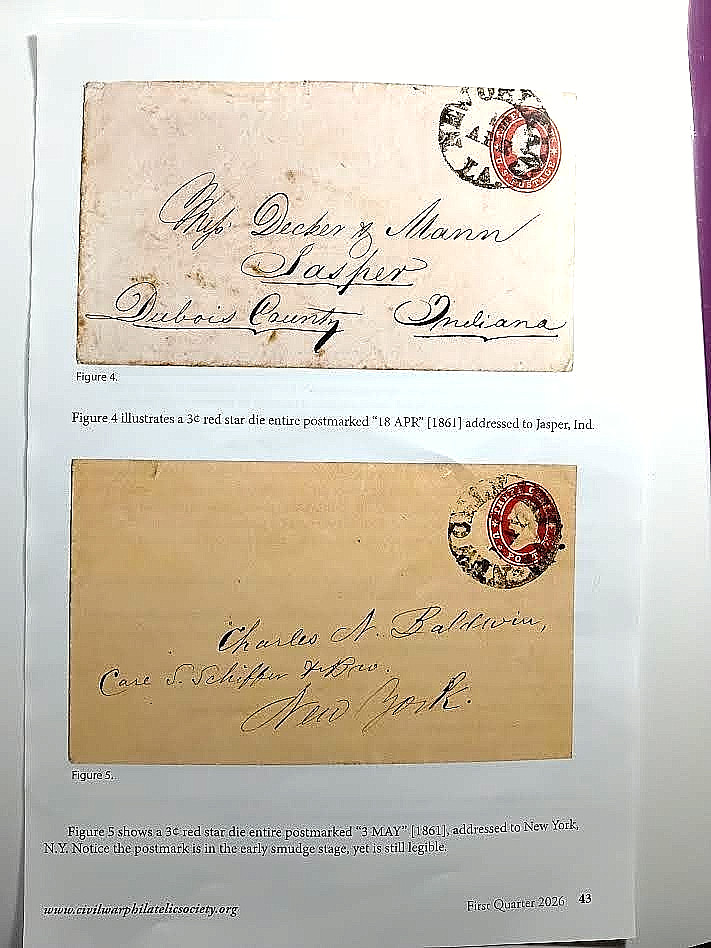 NEW ORLEANS
LA.
Mess Decker & Mann
Jasper
Dubois County Indiana
Figure 4.
Figure 4 illustrates a 3¢ red star die entire postmarked “18 APR” [1861] addressed to Jasper, Ind.
NEW ORLEANS
Charles N. Baldwin,
Care S. Schiffer & Bro.
New York.
Figure 5.
Figure 5 shows a 3¢ red star die entire postmarked “3 MAY” [1861], addressed to New York,
N.Y. Notice the postmark is in the early smudge stage, yet is still legible.
www.civilwarphilatelicsociety.org
First Quarter 2026 43